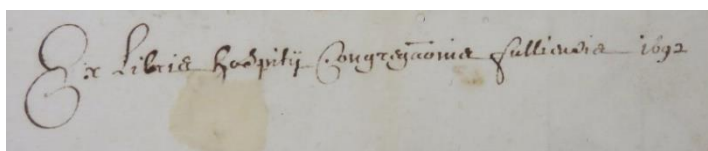 Ex Libris hospitij Congregāonis fulliensis 1692